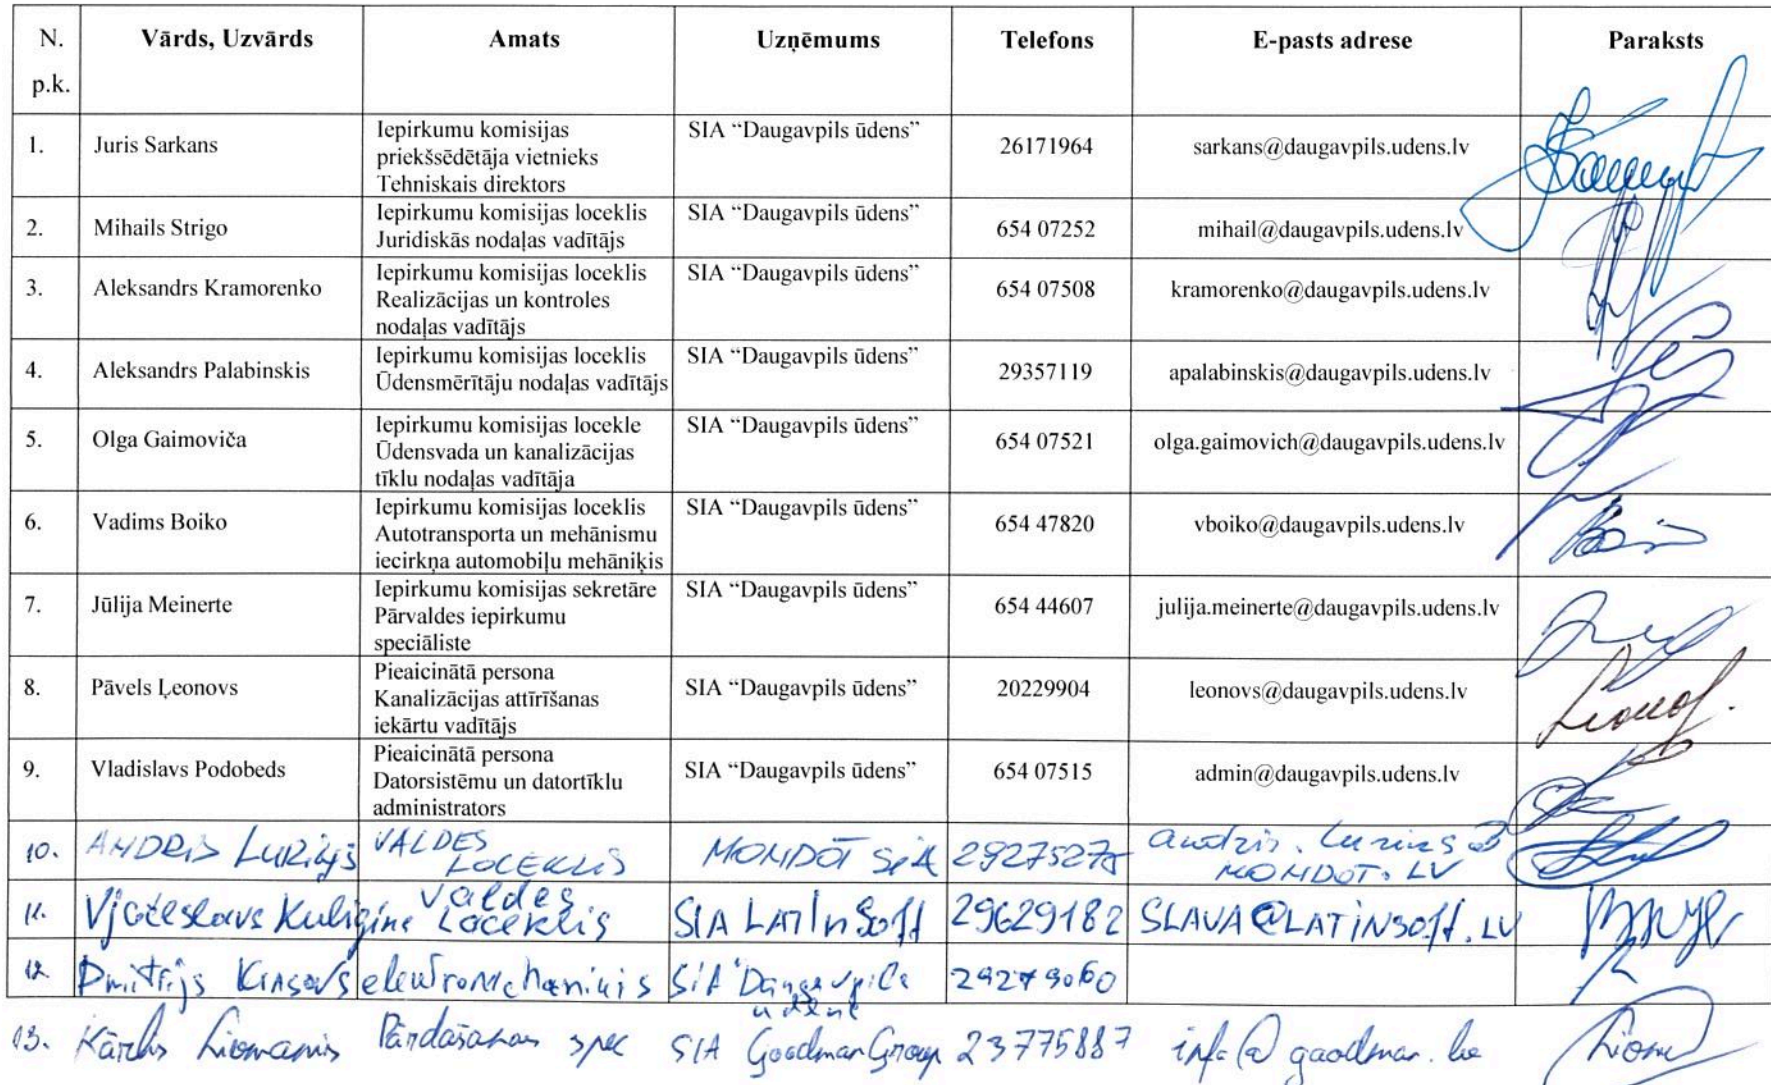 N. p.k. Vārds, Uzvārds Amats Uzņēmums Telefons E-pasts adrese Paraksts
1. Juris Sarkans Iepirkumu komisijas priekšsēdētāja vietnieks Tehniskais direktors SIA “Daugavpils ūdens” 26171964 sarkans@daugavpils.udens.lv
2. Mihails Strigo Iepirkumu komisijas loceklis Juridiskās nodaļas vadītājs SIA “Daugavpils ūdens” 654 07252 mihail@daugavpils.udens.lv
3. Aleksandrs Kramorenko Iepirkumu komisijas loceklis Realizācijas un kontroles nodaļas vadītājs SIA “Daugavpils ūdens” 654 07508 kramorenko@daugavpils.udens.lv
4. Aleksandrs Palabinskis Iepirkumu komisijas loceklis Ūdensmērītāju nodaļas vadītājs SIA “Daugavpils ūdens” 29357119 apalabinskis@daugavpils.udens.lv
5. Olga Gaimoviča Iepirkumu komisijas locekle Ūdensvada un kanalizācijas tīklu nodaļas vadītāja SIA “Daugavpils ūdens” 654 07521 olga.gaimovich@daugavpils.udens.lv
6. Vadims Boiko Iepirkumu komisijas loceklis Autotransporta un mehānismu iecirkņa automobiļu mehāniķis SIA “Daugavpils ūdens” 654 47820 vboiko@daugavpils.udens.lv
7. Jūlija Meinerte Iepirkumu komisijas sekretāre Pārvaldes iepirkumu speciāliste SIA “Daugavpils ūdens” 654 44607 julija.meinerte@daugavpils.udens.lv
8. Pāvels Ļeonovs Pieaicinātā persona Kanalizācijas attīrīšanas iekārtu vadītājs SIA “Daugavpils ūdens” 20229904 leonovs@daugavpils.udens.lv
9. Vladislavs Podobeds Pieaicinātā persona Datorsistēmu un datortīklu administrators SIA “Daugavpils ūdens” 654 07515 admin@daugavpils.udens.lv
10. ANDRIS VALDES LOCEKLIS MONDOT SIA MONDOT.LV
11. Vjačeslavs Kuligins Valdes Loceklis SIA LATInSoft 29629182 SLAVA@LATINSOft.LV
12. Dmitrijs SIA Daugavpils udens
13. Kārlis Pārdošanas spec SIA Goodman Group 23775887